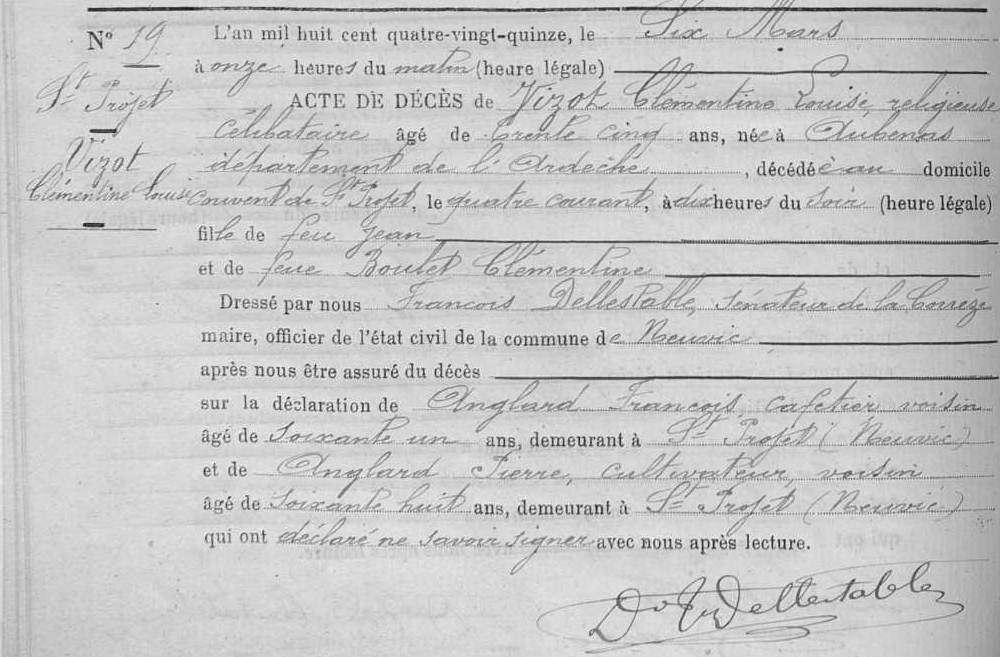 N° 19
St Projet
Vizot
Clémentine Louise
L'an mil huit cent quatre-vingt-quinze, le Six Mars
à onze heures du matin (heure légale)
ACTE DE DÉCÈS de Vizot Clémentine Louise, religieuse
célibataire âgé de trente cinq ans, née à Aubenas
département de l'Ardèche, décédée au domicile
couvent de St Projet, le quatre courant, à dix heures du soir (heure légale)
fille de feu Jean
et de feue Boulet Clémentine
Dressé par nous François Dellestable, sénateur de la Corrèze
maire, officier de l'état civil de la commune de Neuvic
après nous être assuré du décès
sur la déclaration de Anglard François, cafetier, voisin
âgé de soixante un ans, demeurant à St Projet (Neuvic)
et de Anglard Pierre, cultivateur, voisin
âgé de soixante huit ans, demeurant à St Projet (Neuvic)
qui ont déclaré ne savoir signer avec nous après lecture.
Dr Fr Dellestable